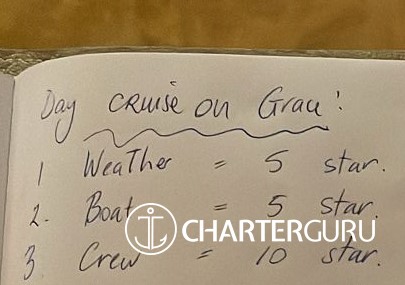 Day cruise on Grace!
1 Weather = 5 star.
2. Boat = 5 star.
CHARTERGURU
3 Crew = 10 star.